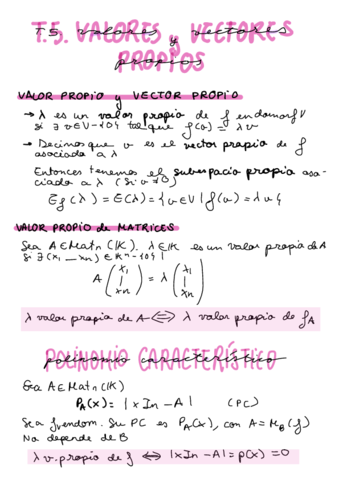 T.5. VALORES y vectores
PROPIOS
VALOR PROPIO y VECTOR PROPIO
→ λ es un valor propio de f endomorf V
si ∃ v∈V-{0} tal que f(v) = λv
→ Decimos que v es el vector propio de f
asociado a λ
Entonces tenemos el subespacio propio aso-
ciado a λ (si v≠0)
E_f(λ) = E(λ) = {v∈V | f(v) = λv}
VALOR PROPIO de MATRICES
Sea A∈Mat_n(K). λ∈K es un valor propio de A
si ∃ (x₁ ... x_n) ∈ K^n-{0} |
A (x₁ | x_n) = λ (x₁ | x_n)
λ valor propio de A ⟺ λ valor propio de f_A
polinomio CARACTERÍSTICO
Sea A∈Mat_n(K)
P_A(x) = |xI_n - A| (PC)
Sea f endom. Su PC es P_A(x), con A = M_B(f)
No depende de B
λ v. propio de f ⟺ |xI_n - A| = p(x) = 0